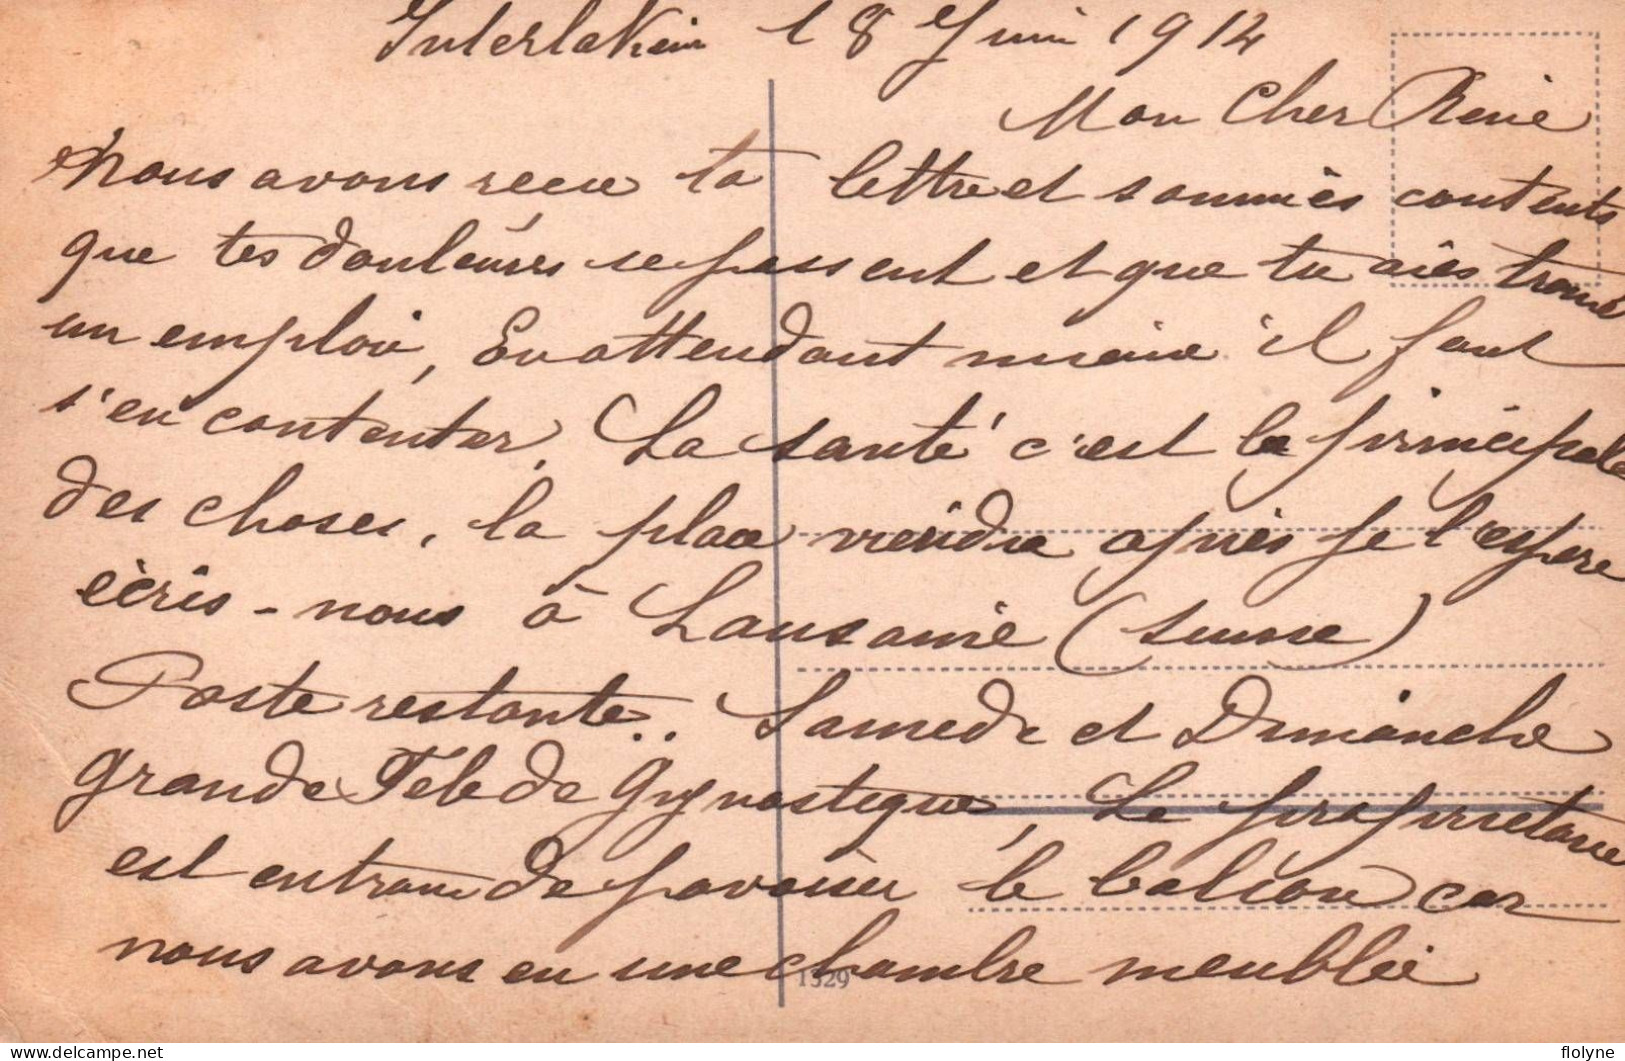 Interlaken 18 Juin 1912
Mon Cher René
Nous avons reçu ta lettre et sommes contents
que tes douleurs se passent et que tu aies trouvé
un emploi, En attendant mieux il faut
s'en contenter. La santé c'est la principale
des choses, la place viendra après je l'espère
écris-nous à Lausanne (Suisse)
Poste restante.. Samedi et Dimanche
grande Fête de Gymnastique, Le propriétaire
est entrain de pavoiser le balcon car
nous avons eu une chambre meublée
1329
flolyne